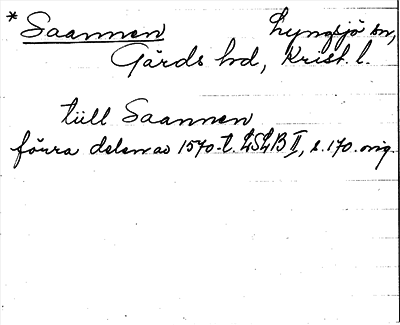 * Saannen Lyngsjö sn,
Gärds hd, Krist. l.
tiill Saannen
förra delen av 1570-t. LSLB II, s. 170. orig.